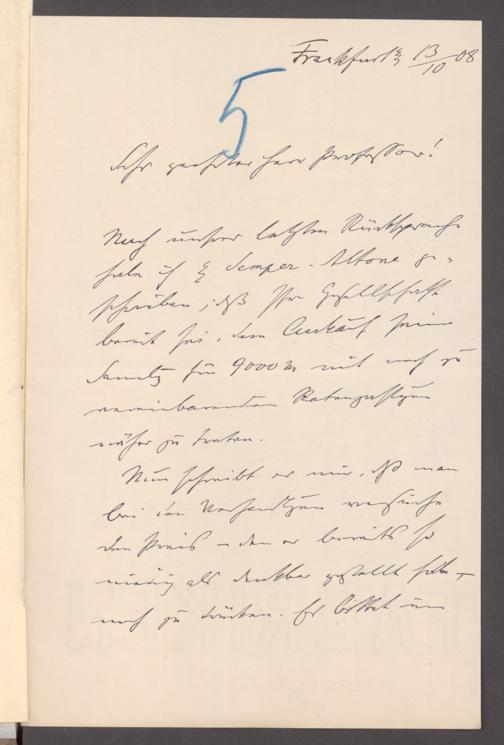 Frankfurt 13/10 08
5
Sehr geehrter Herr Professor!
Nach unserer letzten Rücksprache
habe ich Semper-Altona ge-
schrieben, daß Ihre Gesellschaft
bereit sei, dem Ankauf seiner
Sammlg für 9000 M mit noch zu
vereinbarenden Ratenzahlgen
näher zu treten.
Nun schreibt er mir, daß man
bei den Verhandlgen versuche
den Preis – den er bereits so
niedrig als denkbar gestellt habe –
noch zu drücken. Er bittet um